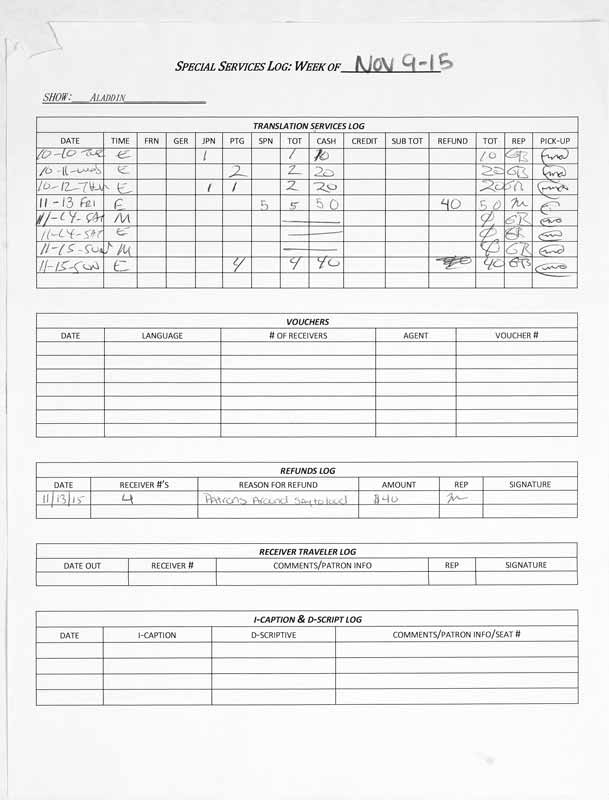 SPECIAL SERVICES LOG: WEEK OF NOV 9-15
SHOW: ALADDIN
TRANSLATION SERVICES LOG
DATE TIME FRN GER JPN PTG SPN TOT CASH CREDIT SUB TOT REFUND TOT REP PICK-UP
10-10 TUE E 1 1 10 10 GB
10-11-WED E 2 2 20 20 GB
10-12-THU E 1 1 2 20 20 GB
11-13 FRI E 5 5 50 40 50
11-14-SAT M Ø GB
11-14-SAT E Ø GB
11-15-SUN M Ø GB
11-15-SUN E 4 4 40 40 GB
VOUCHERS
DATE LANGUAGE # OF RECEIVERS AGENT VOUCHER #
REFUNDS LOG
DATE RECEIVER #'S REASON FOR REFUND AMOUNT REP SIGNATURE
11/13/15 4 Patrons Around Say too loud $40
RECEIVER TRAVELER LOG
DATE OUT RECEIVER # COMMENTS/PATRON INFO REP SIGNATURE
I-CAPTION & D-SCRIPT LOG
DATE I-CAPTION D-SCRIPTIVE COMMENTS/PATRON INFO/SEAT #